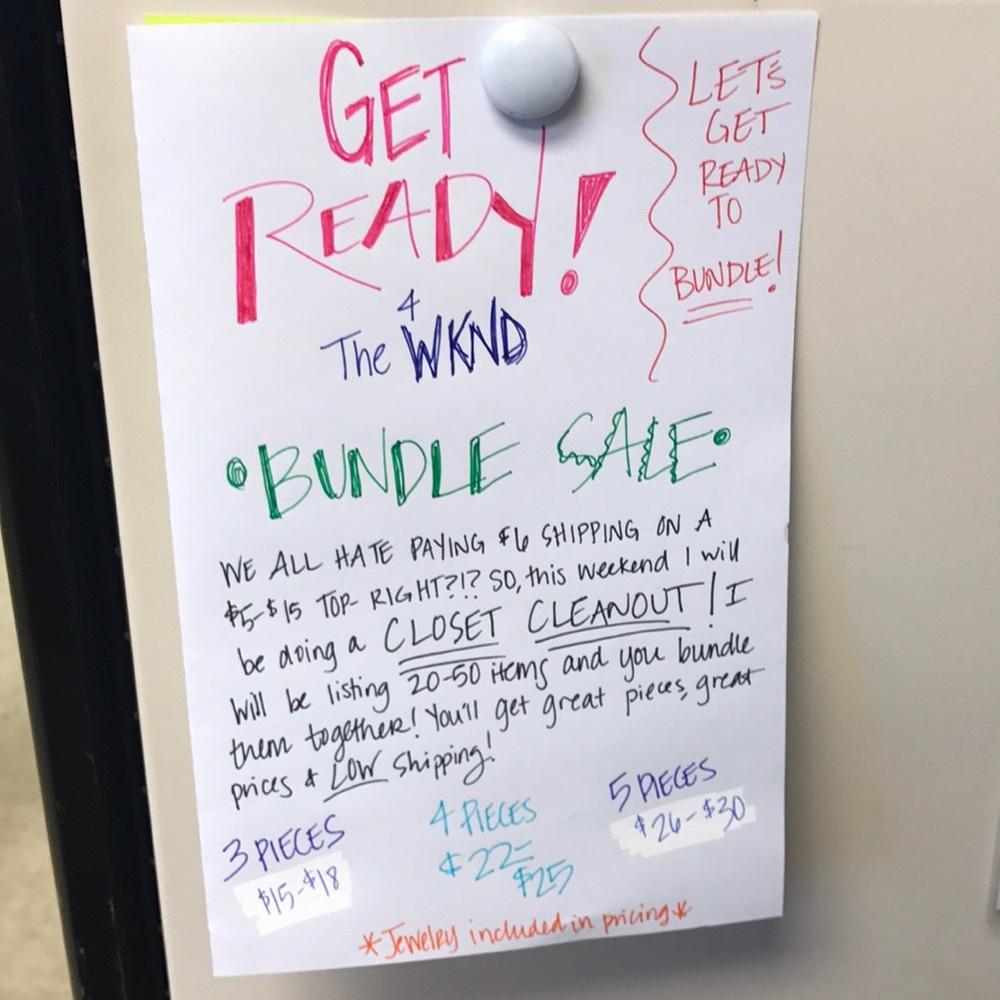 GET
READY!
4
The WKND
LET'S
GET
READY
TO
BUNDLE!
•BUNDLE SALE•
WE ALL HATE PAYING $6 SHIPPING ON A
$5-$15 TOP- RIGHT?!? SO, this weekend I will
be doing a CLOSET CLEANOUT! I
will be listing 20-50 items and you bundle
them together! You'll get great pieces, great
prices & LOW shipping!
3 PIECES
$15-$18
4 PIECES
$22-
$25
5 PIECES
$26-$30
*Jewelry included in pricing*